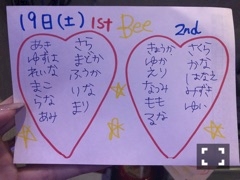 19日(土) 1st Bee 2nd
あき
ゆずは
れいな
まこ
らな
あみ
さら
まどか
ふうか
りな
まり
きょうか
ゆか
えり
なつみ
もも
るな
さくら
かな
はなえ
みずき
ゆい